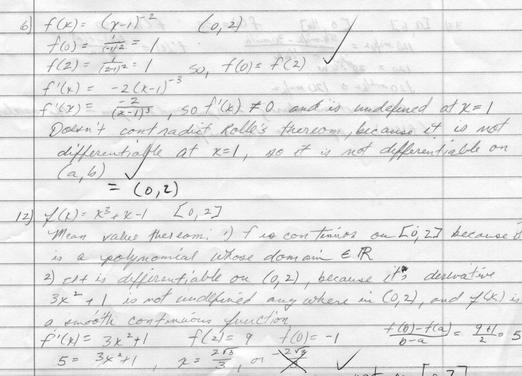 6) f(x) = (x-1)⁻² (0,2)
f(0) = 1/(-1)² = 1
f(2) = 1/(2-1)² = 1 so, f(0) = f(2) ✓
f'(x) = -2(x-1)⁻³
f'(x) = -2/(x-1)³, so f'(x) ≠ 0 and is undefined at x=1
Doesn't contradict Rolle's thereom, because it is not
differentiable at x=1, so it is not differentiable on
(a,b)
= (0,2)
12) f(x) = x³+x-1 [0,2]
Mean value thereom: 1) f is continous on [0,2] because it
is a polynomial whose domain ∈ ℝ
2) it is differentiable on (0,2), because it's derivative
3x²+1 is not undefined anywhere in (0,2), and f(x) is
a smooth continuous function
f'(x) = 3x²+1 f(2) = 9 f(0) = -1 f(b)-f(a)/b-a = 9+1/2 = 5
5 = 3x²+1, x = 2√3/3, or ✓